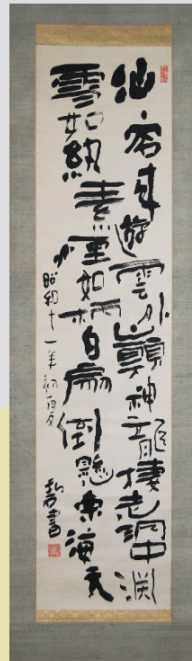 仙客来遊雲外巓神龍棲老洞中渕
雪如紈素煙如柄白扇倒懸東海天
昭和十一年初夏
書